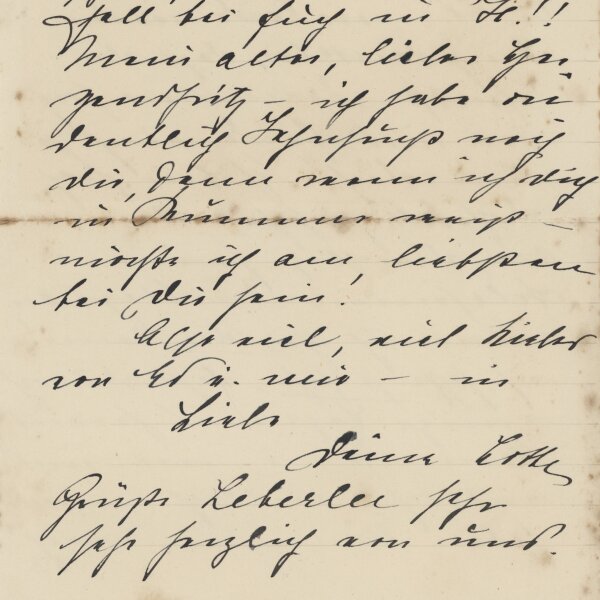 soll bei Euch in H.!!
Mein alter, lieber
– ich habe or
dentlich Sehnsucht nach
Dir, denn wenn ich Dich
in Kummer weiß –
möchte ich am liebsten
bei Dir sein!
Also viel, viel Liebes
von Ed u. mir – in
Liebe
Deine Lotte
Grüße Leberlee sehr
sehr herzlich von uns.